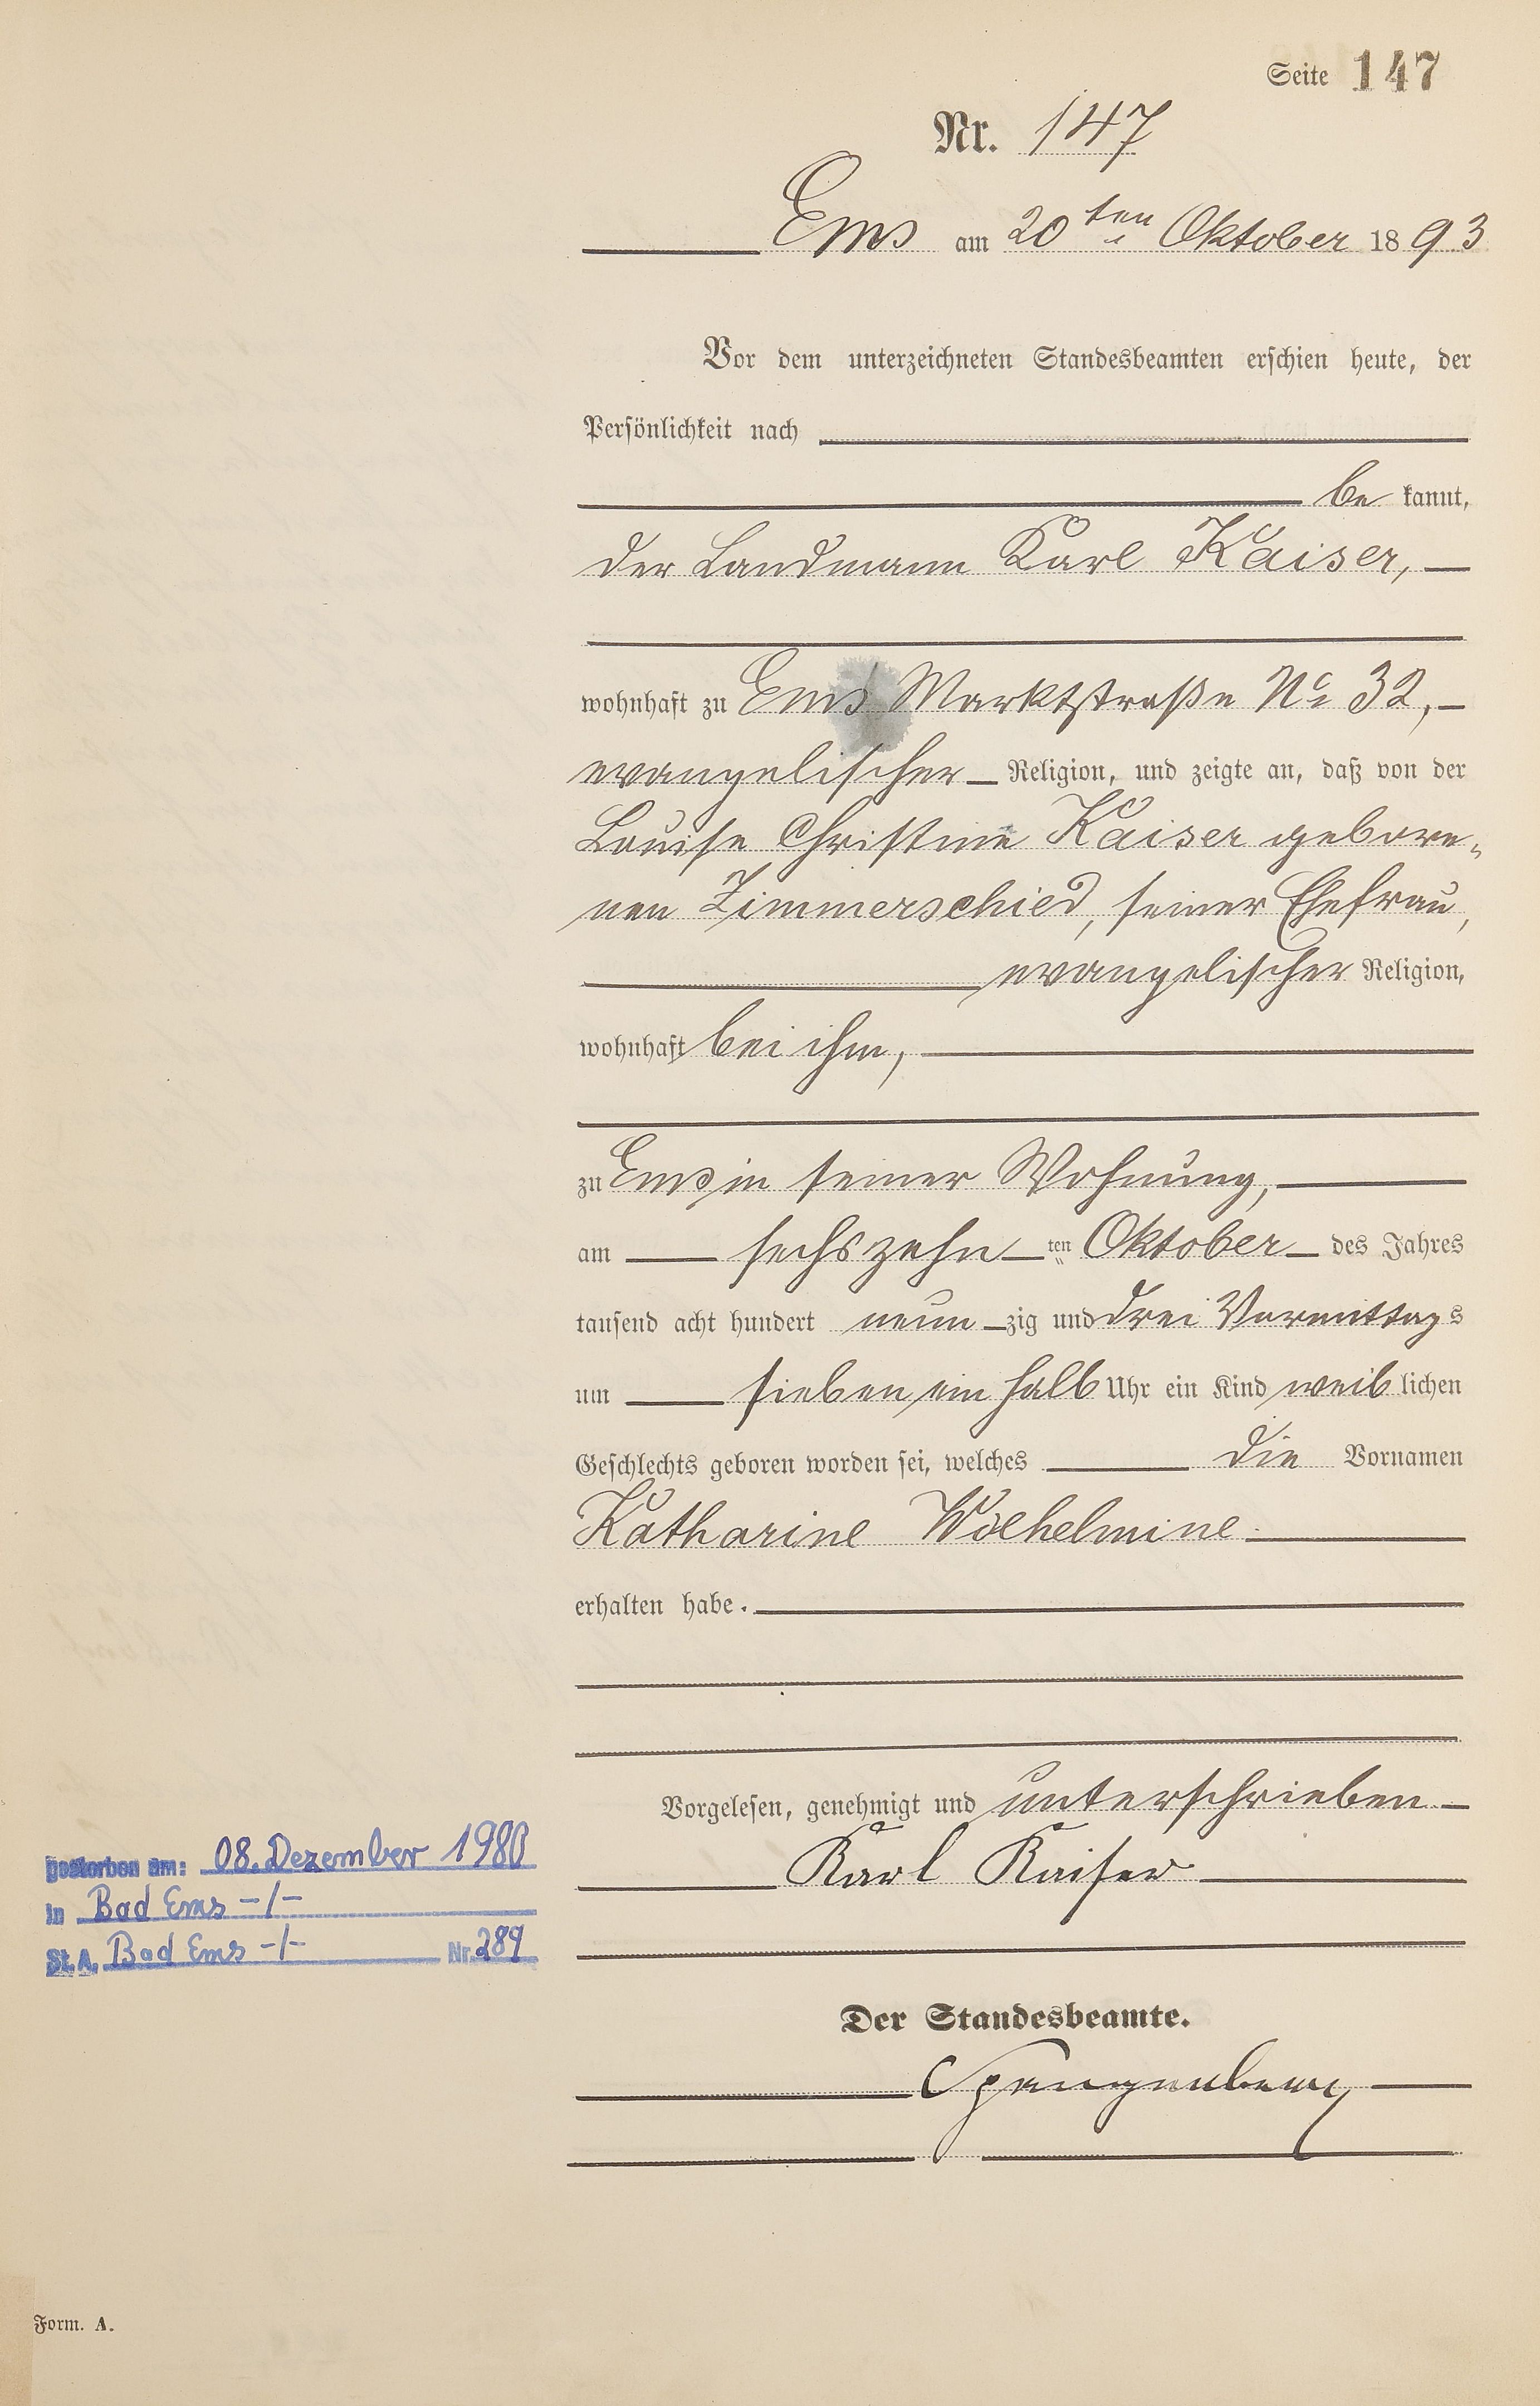 Seite 147
Nr. 147
Ems am 20ten Oktober 1893
Vor dem unterzeichneten Standesbeamten erschien heute, der
Persönlichkeit nach
be kannt,
der Landmann Karl Kaiser,
wohnhaft zu Ems Marktstraße No 32,
evangelischer Religion, und zeigte an, daß von der
Louise Christine Kaiser gebore-
nen Zimmerschied, seiner Ehefrau,
evangelischer Religion,
wohnhaft bei ihm,
zu Ems in seiner Wohnung,
am sechszehn ten Oktober des Jahres
tausend acht hundert neun zig und drei Vormittags
um sieben ein halb Uhr ein Kind weib lichen
Geschlechts geboren worden sei, welches die Vornamen
Katharine Wilhelmine
erhalten habe.
Vorgelesen, genehmigt und unterschrieben
Karl Kaiser
gestorben am: 08. Dezember 1980
in Bad Ems -/-
St. A. Bad Ems -/- Nr. 289
Der Standesbeamte.
Spangenberg
Form. A.